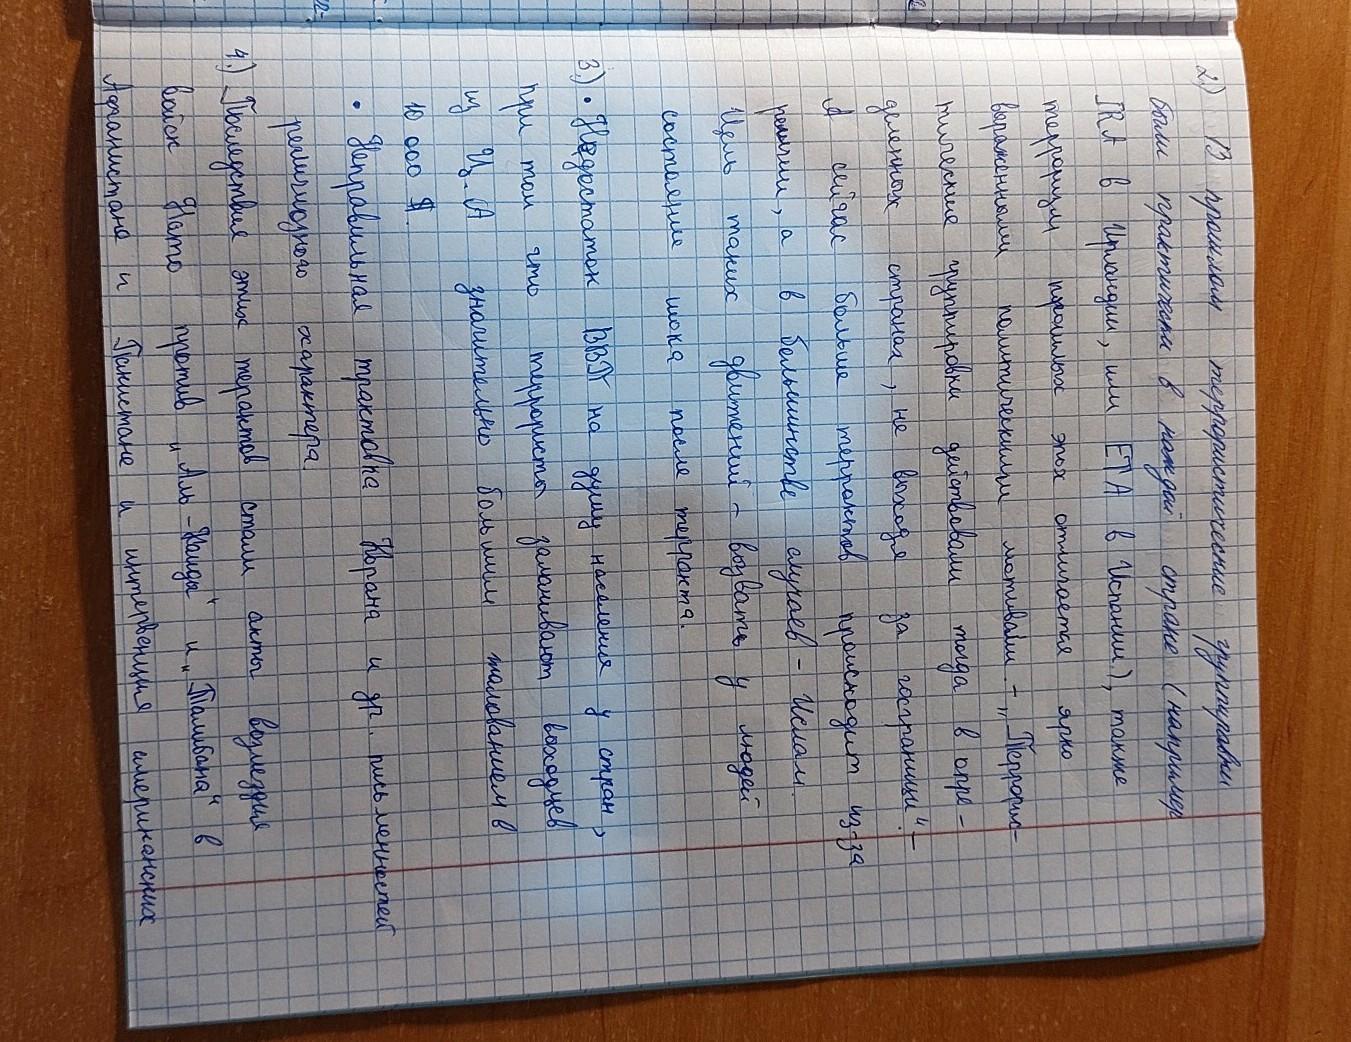 2.) В прошлом террористические группировки
были практически в каждой стране (например
IRA в Ирландии, или ETA в Испании.), также
терроризм прошлых эпох отличается ярко
выраженными политическими мотивами. - „Террорис-
тические группировки действовали тогда в опре-
деленных странах, не выходя за госграницы". -
А сейчас больше терактов происходит из-за
религии, а в большинстве случаев - Ислам.
Цель таких движений - вызвать у людей
состояние шока после терракта.
3.) • Недостаток ВВП на душу населения у стран,
при том что террористы заманивают выходцев
из Ц.А значительно большим жалованием в
10 000 $.
• Неправильная трактовка Корана и др. письменностей
религиозного характера
4.) Последствия этих терактов стали акты возмездия
войск Нато против „Аль-Каиды" и „Талибана" в
Афганистане и Пакистане и интервенция американских